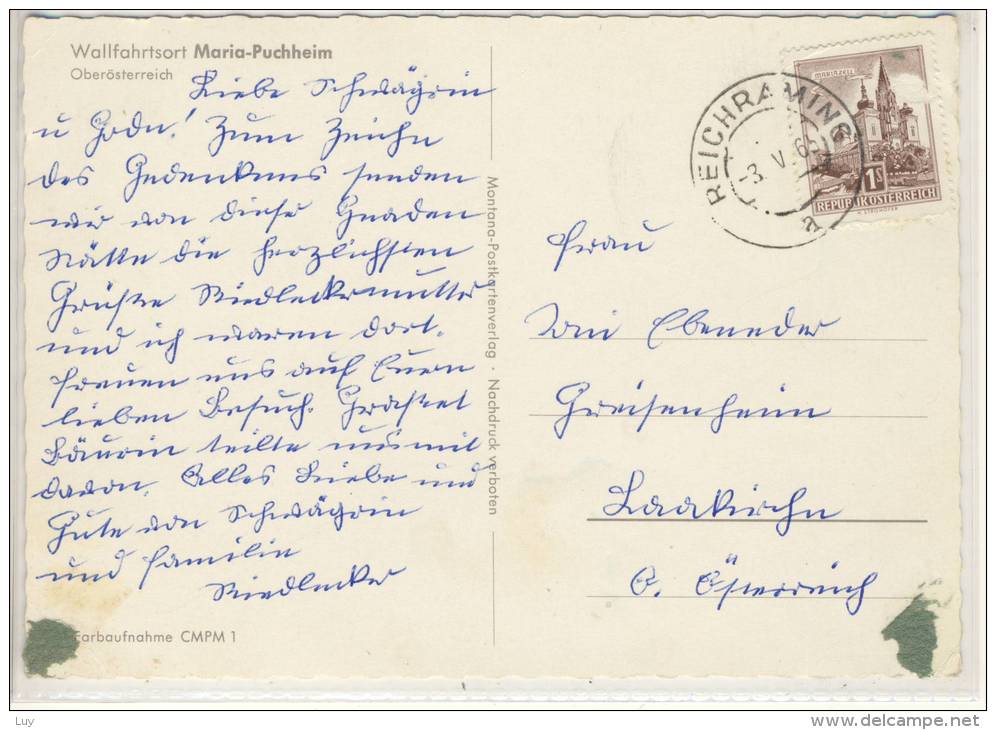 Wallfahrtsort Maria-Puchheim
Oberösterreich
Liebe Schwägrin
u Godn! Zum Zeichn
des Gedenkens senden
wir von dieser Gnaden
stätte die herzlichsten
Grüße Riedleckermutter
und ich waren dort.
freuen uns auf Euern
lieben Besuch.
Bäurin teilte uns mit
davon. Alles Liebe und
Gute von Schwägrin
und Familie
Riedlecker
Farbaufnahme CMPM 1
Montana-Postkartenverlag · Nachdruck verboten
REICHRAMING
-3. V. 65
a
MARIAZELL
1S
REPUBLIK ÖSTERREICH
Frau
Ebeneder
Greisenheim
Laakirchn
O. Österreich
Luy
delcampe.net